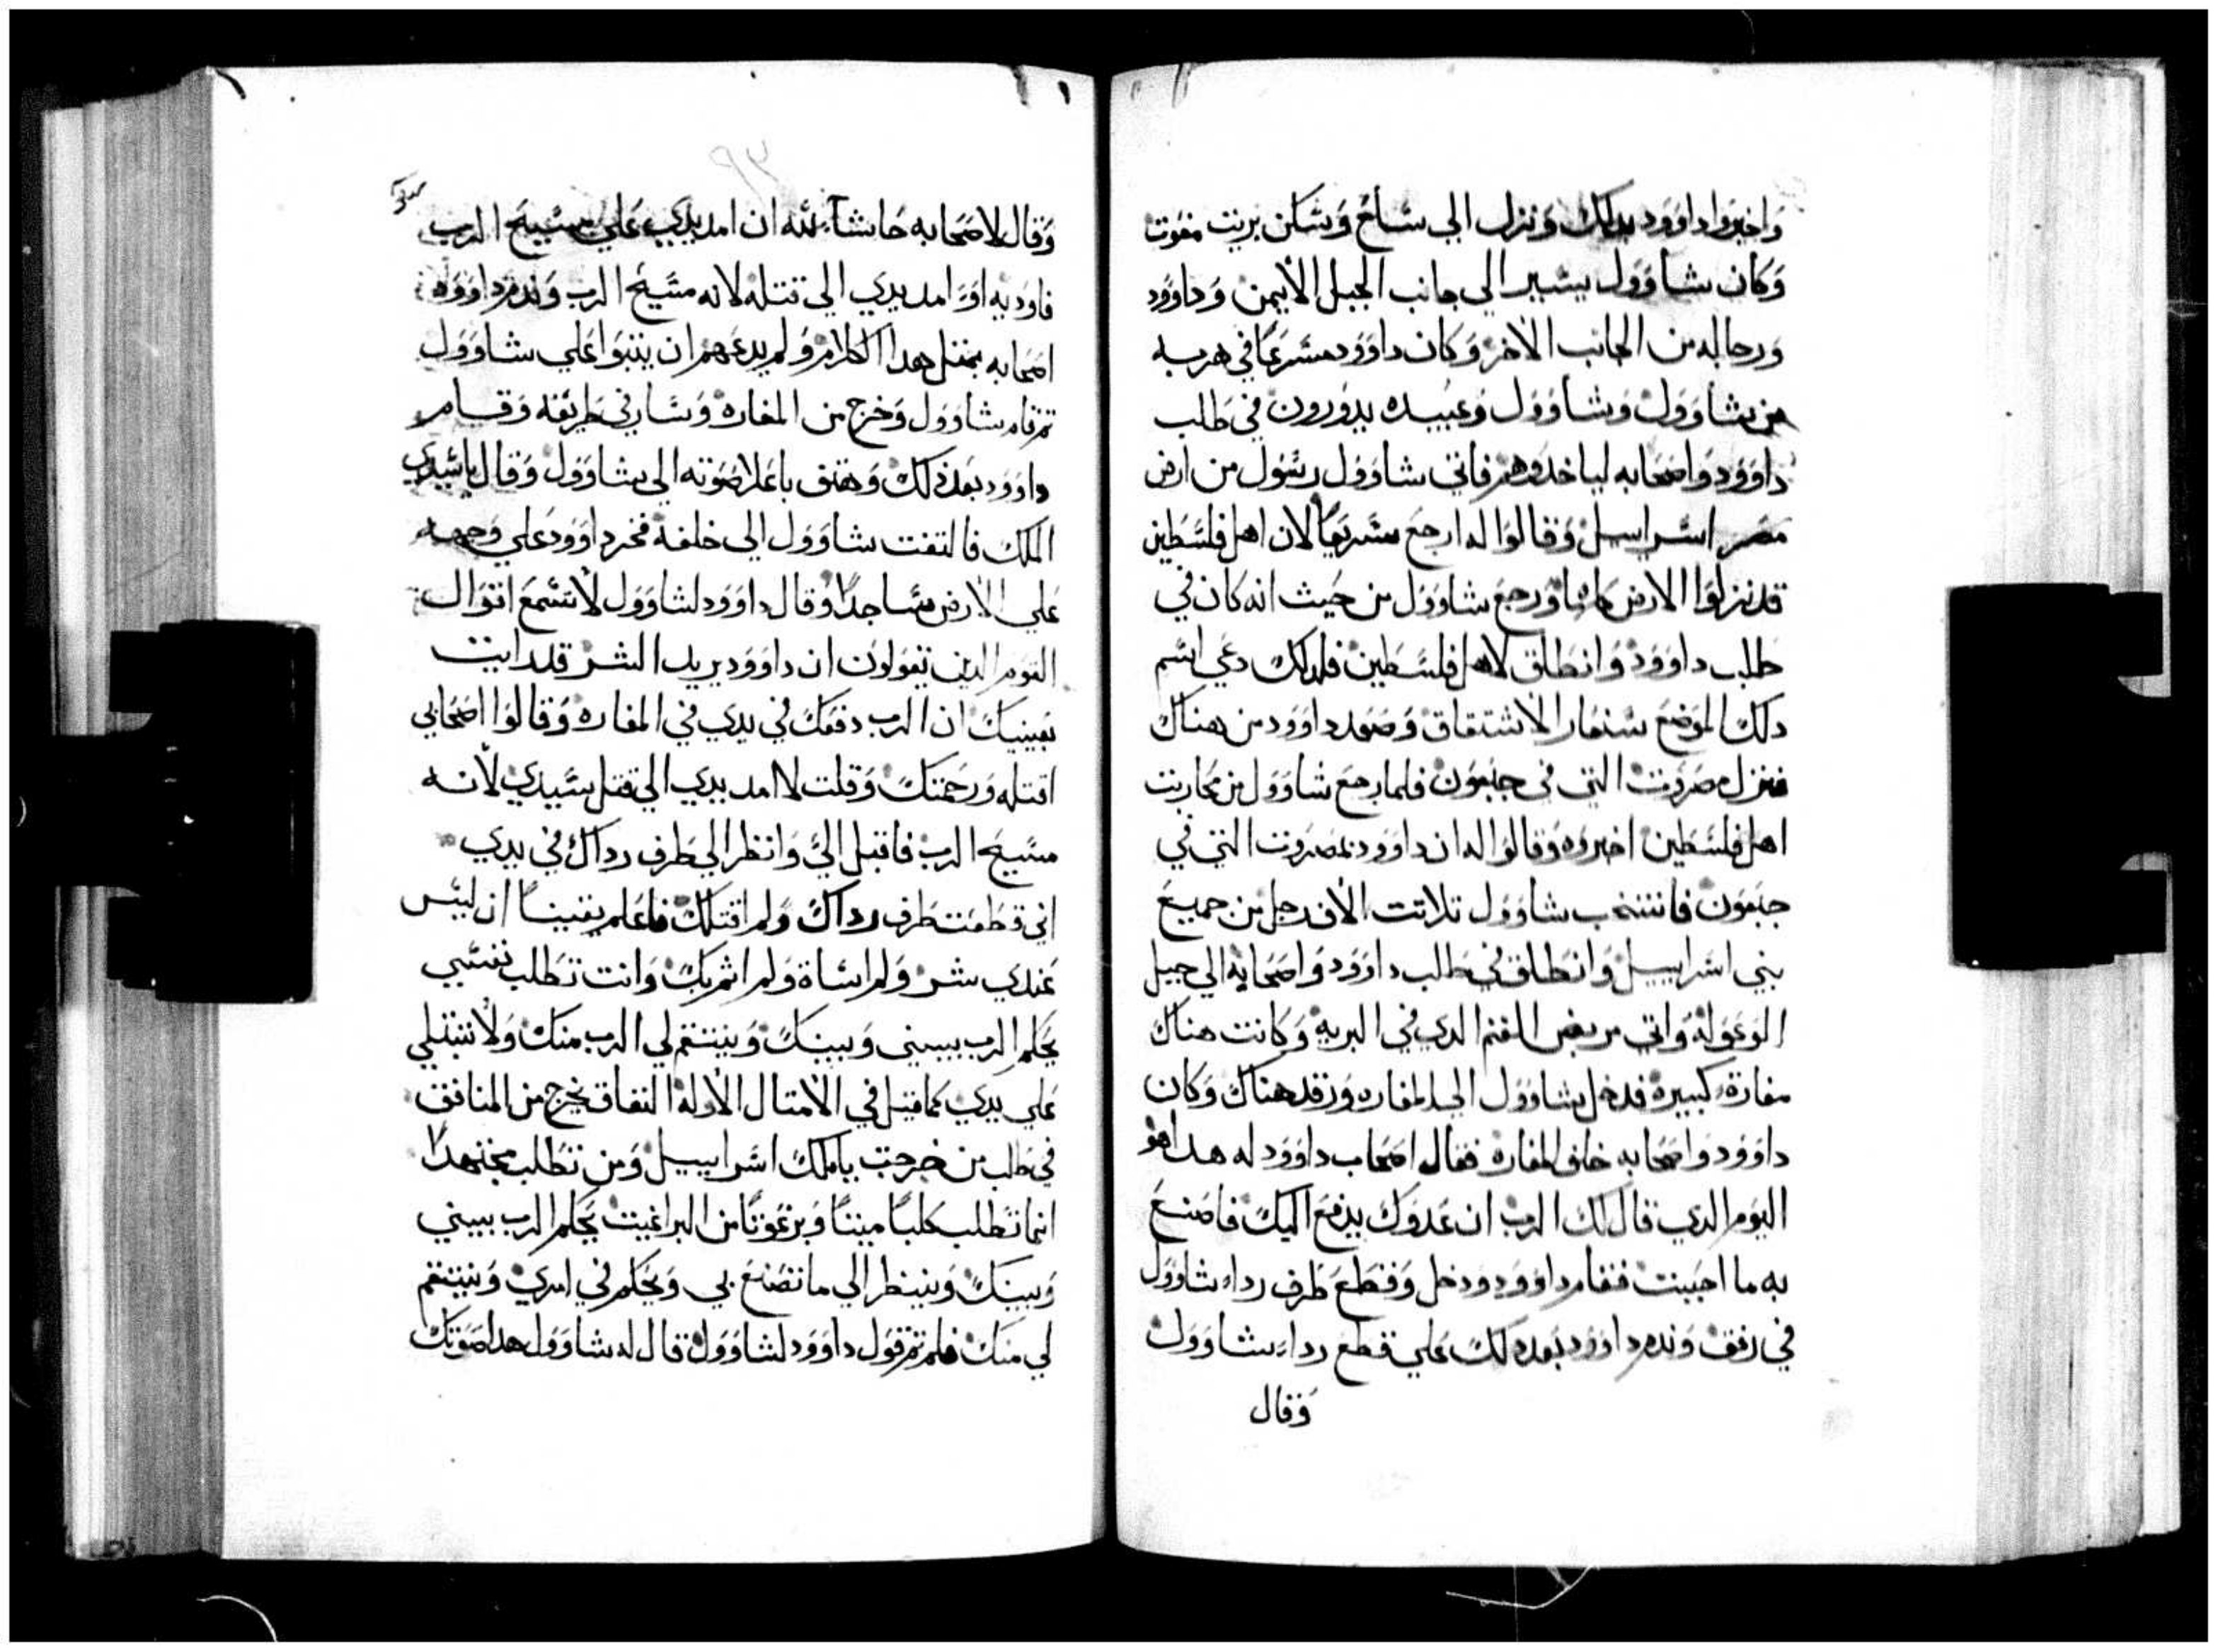 واخبروا داوود بدلك ونزل الي ساع وسكن بريت مغوت
وكان شاوول يسير الي جانب الجبل الايمن وداوود
ورجاله من الجانب الاخر وكان داوود مسرعا في هربه
من شاوول وشاوول وعبيده يدورون في طلب
داوود واصحابه لياخدوهم فاتي شاوول رسول من ارض
مصر اسراييل وقالوا له ارجع مسرعا لان اهل فلسطين
قد نزلوا الارض كلها ورجع شاوول من حيث انه كان في
طلب داوود وانطلق لاهل فلسطين فلدلك دعي اسم
دلك الموضع سنعار الاشتقاق وصعد داوود من هناك
فنزل مصروت التي في جبعون فلما رجع شاوول من محاربت
اهل فلسطين اخبروه وقالوا له ان داوود بمصروت التي في
جبعون فانتخب شاوول تلاتت الاف رجل من جميع
بني اسراييل وانطلق في طلب داوود واصحابه الي جبل
الوعوله واتي مربض الغنم الدي في البريه وكانت هناك
مغارة كبيرة فدخل شاوول الي المغاره ورقد هناك وكان
داوود واصحابه خلف المغارة فقال اصحاب داوود له هدا هو
اليوم الدي قال لك الرب ان عدوك يدفع اليك فاصنع
به ما احببت فقام داوود ودخل وقطع طرف رداء شاوول
في رفق وندم داوود بعد دلك علي قطع رداء شاوول
وقال
٩٣
وقال لاصحابه حاشا لله ان امد يدي علي مسيح الرب
فاوديه او امد يدي الي قتله لانه مسيح الرب وندم داوود
اصحابه بمتل هدا الكلام ولم يدعهم ان يتبوا علي شاوول
تم قام شاوول وخرج من المغارة وسار في طريقه وقام
داوود بعد دلك وهتف باعلا صوته الي شاوول وقال يا سيدي
الملك فالتفت شاوول الي خلفه فخر داوود علي وجهه
علي الارض ساجدا وقال داوود لشاوول لا تسمع اقوال
القوم الدين يقولون ان داوود يريد الشر قد رايت
بعينيك ان الرب دفعك في يدي في المغاره وقالوا اصحابي
اقتله ورحمتك وقلت لا امد يدي الي قتل سيدي لانه
مسيح الرب فاقبل الي وانظر الي طرف رداك في يدي
اني قطعت طرف رداك ولم اقتلك فاعلم يقينا ان ليس
عندي شر ولم اساة ولم اتم بك وانت تطلب نفسي
يحكم الرب بيني وبينك وينتقم لي الرب منك ولا تبتلي
علي يدي كما قيل في الامتال الاوله النفاق يخرج من المنافق
في طلب من خرجت يا ملك اسراييل ومن تطلب مجتهدا
انما تطلب كلبا ميتا وبرغوتا من البراغيت يحكم الرب بيني
وبينك وينظر الي ما تصنع بي ويحكم في امري وينتقم
لي منك فلم تم قول داوود لشاوول قال له شاوول هدا صوتك